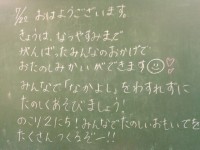 7/22 おはようございます。
きょうは、なつやすみまで
がんばったみんなのおかげで
おたのしみかいができます
みんなで「なかよし」をわすれずに
たのしくあそびましょう!
のこり2にち!みんなでたのしいおもいでを
たくさんつくるぞー!!